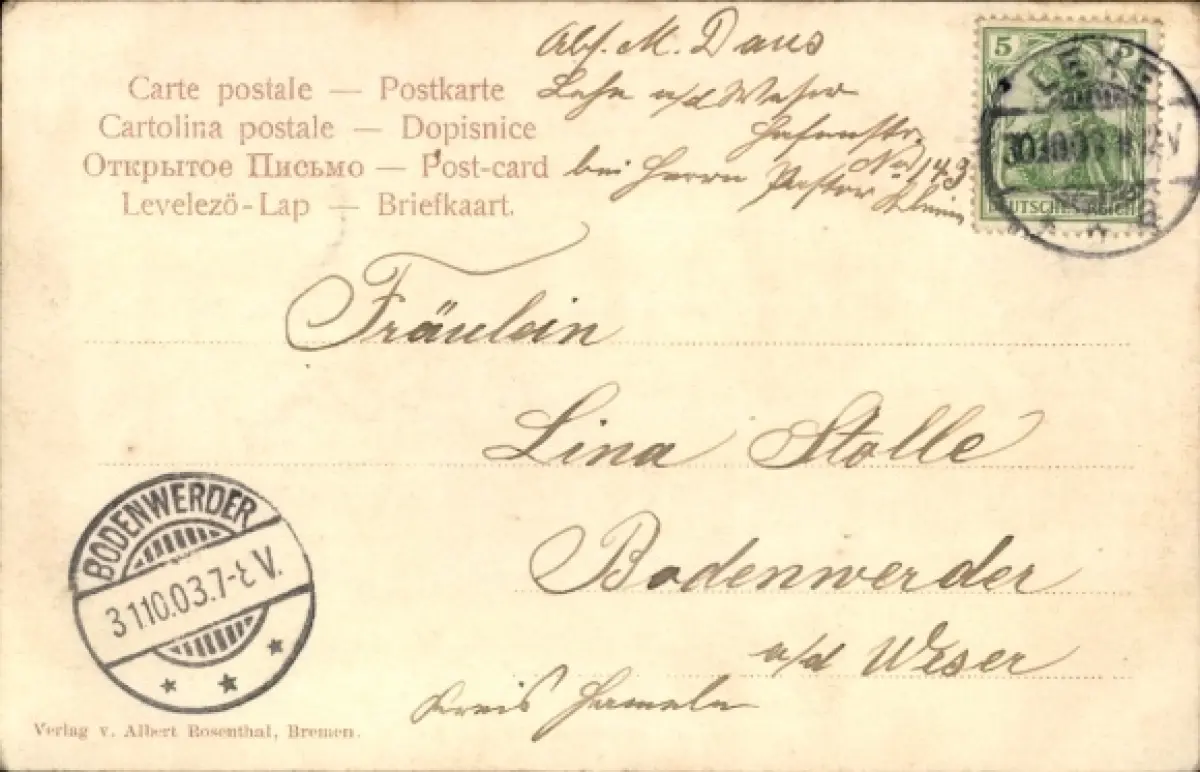 Abs. M. Daus
Lehe a/d Weser
Hafenstr.
No 143
bei Herrn Pastor
Carte postale — Postkarte
Cartolina postale — Dopisnice
Открытое Письмо — Post-card
Levelezö-Lap — Briefkaart.
5
LEHE
DEUTSCHES REICH
Fräulein
Lina Stolle
Bodenwerder
a/d Weser
Kreis Hameln
BODENWERDER
31.10.03.7-8 V.
Verlag v. Albert Rosenthal, Bremen.